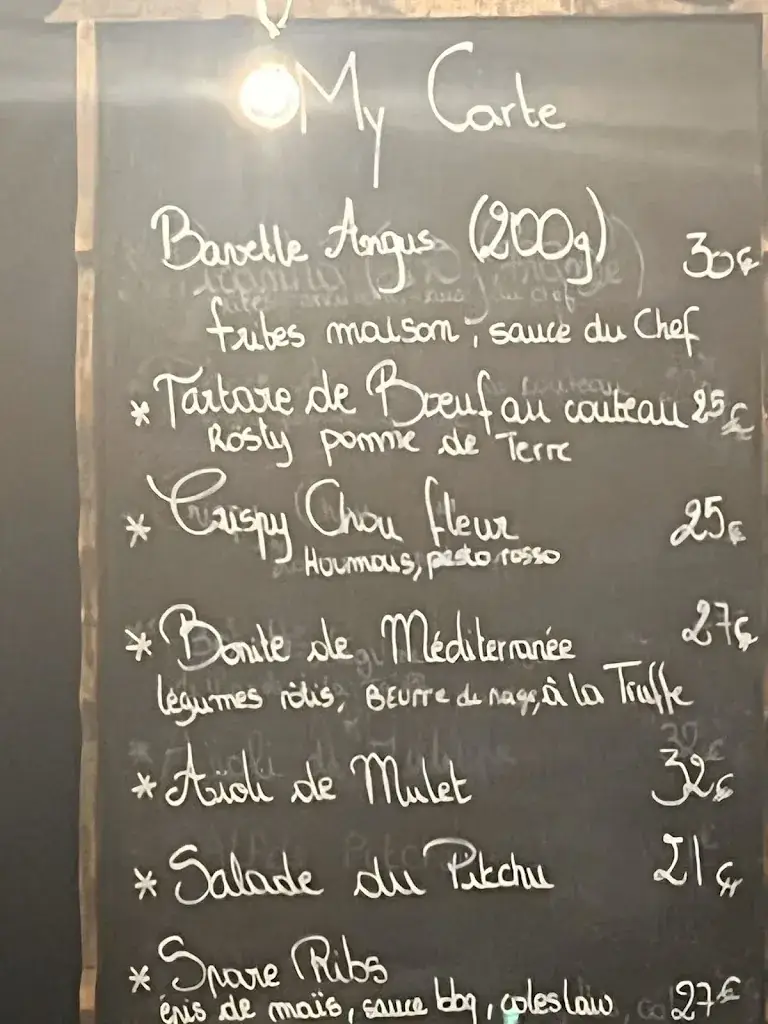 My Carte
Bavette Angus (200g) 30€
frites maison, sauce du Chef
* Tartare de Bœuf au couteau 25€
Rösty pomme de Terre
* Crispy Chou fleur 25€
Houmous, pesto rosso
* Bonite de Méditerranée 27€
légumes rôtis, Beurre de nage, à la Truffe
* Aïoli de Mulet 32€
* Salade du Pitchu 21€
* Spare Ribs
épis de maïs, sauce bbq, coleslaw 27€